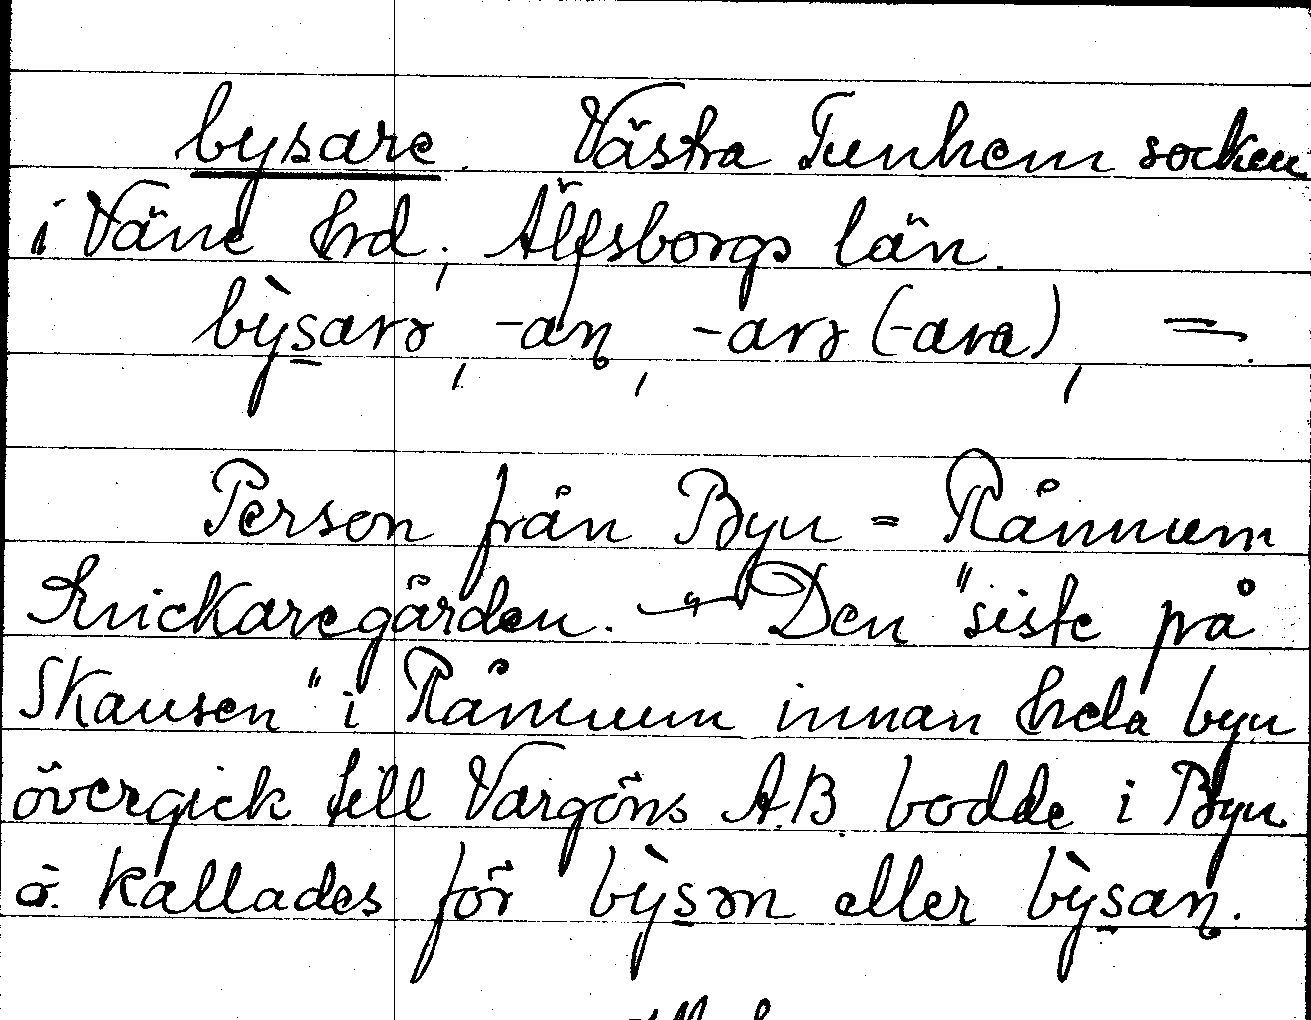 bysare. Västra Tunhem socken
i Väne hrd; Älfsborgs län.
bỳsarə, -aɳ, -arə (-ara), =.
Person från Byn = Rånnum
Snickaregården. - Den "siste på
Skansen" i Rånnum innan hela byn
övergick till Vargöns A.B. bodde i Byn
o. kallades för bỳsən eller bỳsaɳ.